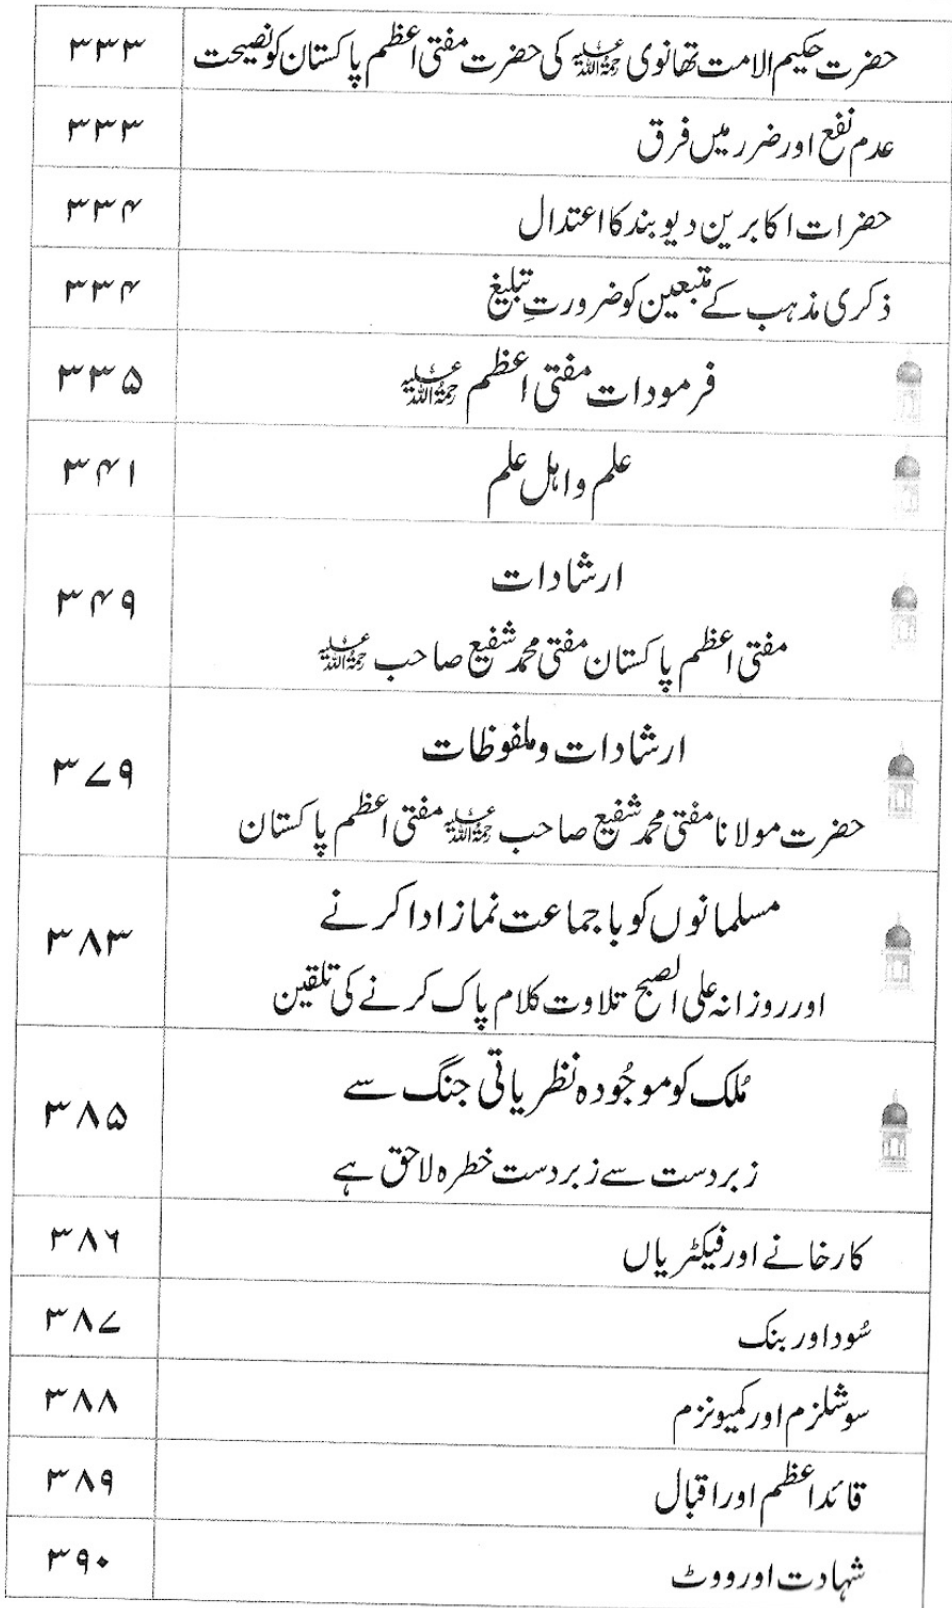 حضرت حکیم الامت تھانوی رحمۃ اللہ علیہ کی حضرت مفتی اعظم پاکستان کو نصیحت ۳۳۳
عدم نفع اور ضرر میں فرق ۳۳۳
حضرات اکابرین دیوبند کا اعتدال ۳۳۴
ذکری مذہب کے متبعین کو ضرورتِ تبلیغ ۳۳۴
فرمودات مفتی اعظم رحمۃ اللہ علیہ ۳۳۵
علم و اہل علم ۳۴۱
ارشادات
مفتی اعظم پاکستان مفتی محمد شفیع صاحب رحمۃ اللہ علیہ ۳۴۹
ارشادات و ملفوظات
حضرت مولانا مفتی محمد شفیع صاحب رحمۃ اللہ علیہ مفتی اعظم پاکستان ۳۷۹
مسلمانوں کو باجماعت نماز ادا کرنے
اور روزانہ علی الصبح تلاوت کلام پاک کرنے کی تلقین ۳۸۳
مُلک کو موجُودہ نظریاتی جنگ سے
زبردست سے زبردست خطرہ لاحق ہے ۳۸۵
کارخانے اور فیکٹریاں ۳۸۶
سُود اور بنک ۳۸۷
سوشلزم اور کمیونزم ۳۸۸
قائداعظم اور اقبال ۳۸۹
شہادت اور ووٹ ۳۹۰